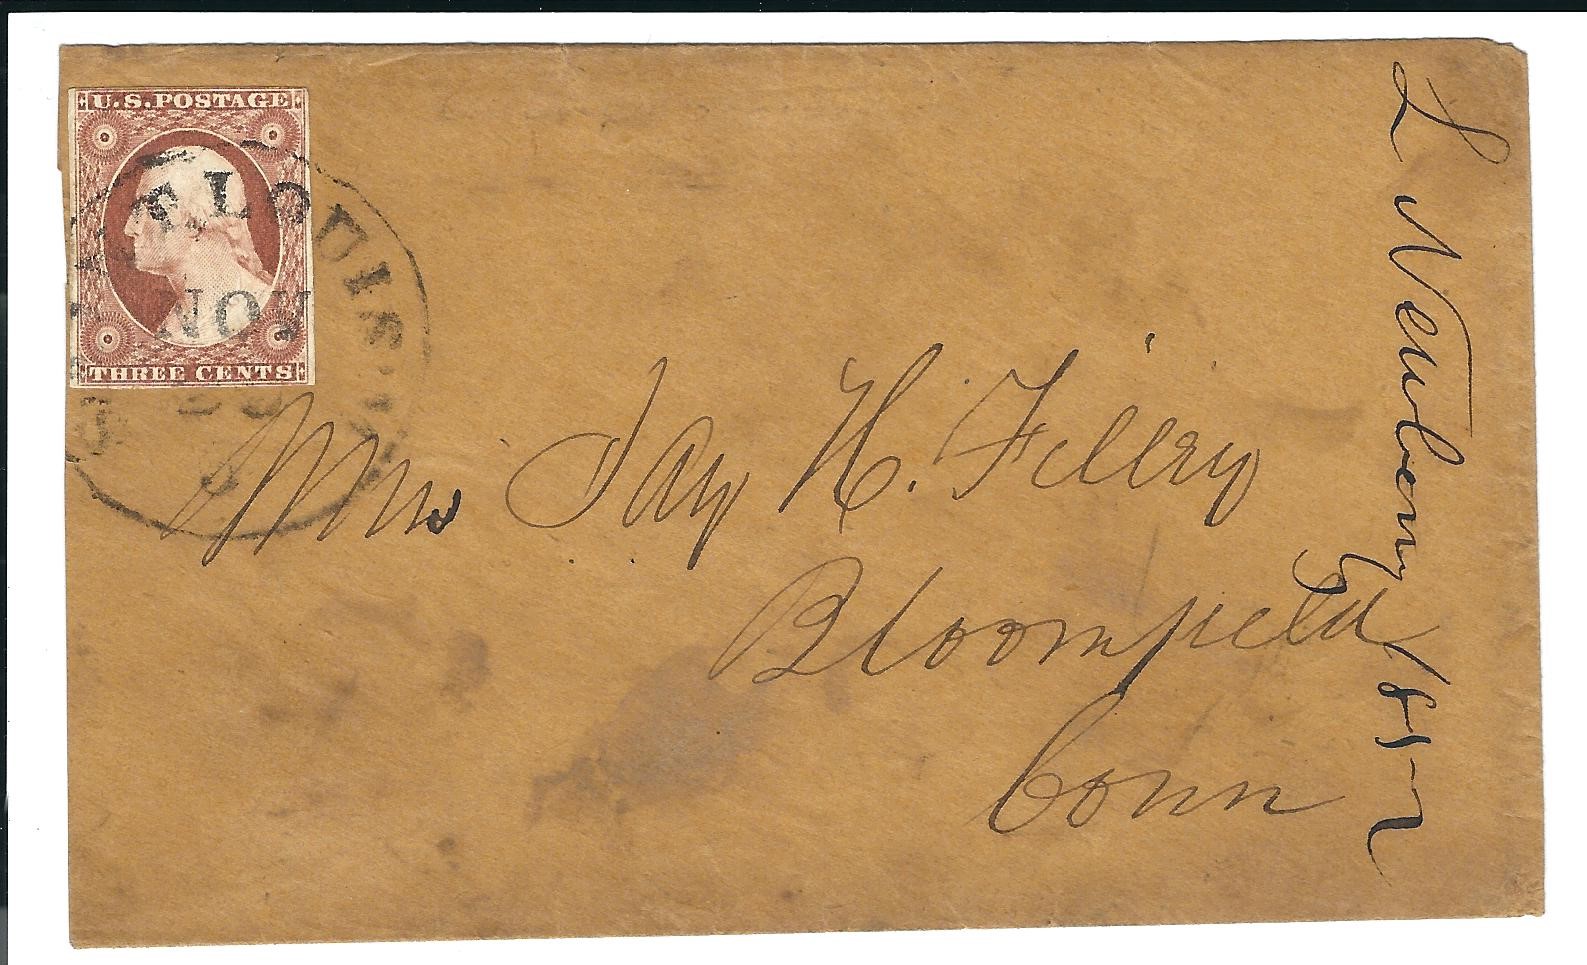 U.S. POSTAGE
THREE CENTS
ST. LOUIS
NOV
Mrs Jay H. Filley
Bloomfield
Conn
L Newberry / 1857